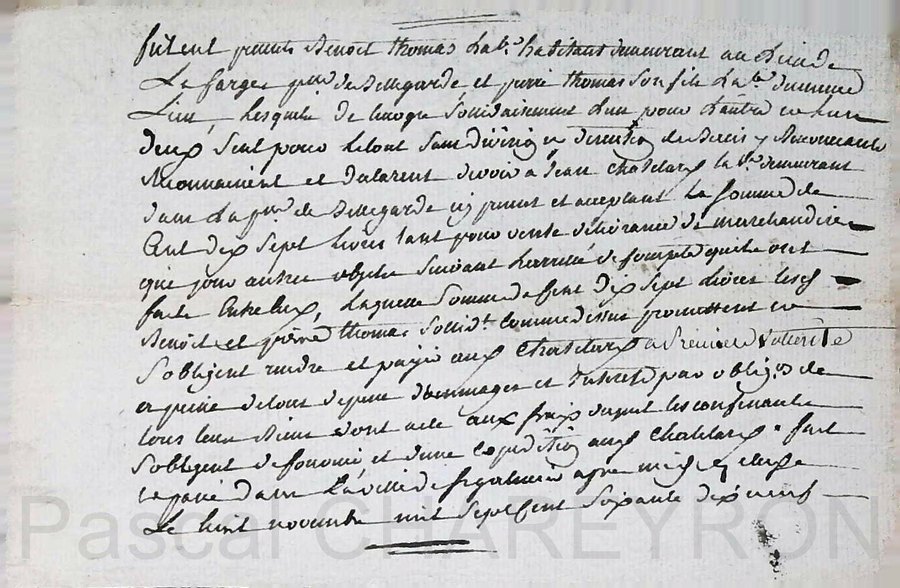 furent presents Benoit thomas lab.r habitant demeurant au Lieu de
La farge p.sse de Bellegarde et pierre thomas son fils lab.r du meme
Lieu, Lesquels de leur gré solidairement L'un pour L'autre
deux seul pour le tout sans division ni discution de Biens y Renonceants
Reconnoissent et declarent devoir à Jean Chatelard lab.r demeurant
dans La p.sse de Bellegarde icy present et acceptant La somme de
Cent dix sept livres tant pour vente delivrance de marchandise
que pour autres objets suivant L'arrété de compte qu'ils ont
fait Entre Eux, Laquelle somme de Cent dix sept Livres lesd.
Benoit et pierre thomas solid.t comme dessus promettent et
s'obligent rendre et payer aud. Chatelard a Premiere Vollonté
a peine de tous depens dommages et interets par oblig.on de
tous leurs Biens dont acte aux frais duquel les confessants
s'obligent de fournir et d'une expedition aud. Chatelard. fait
et passé dans La ville de après midy
Le huit novembre mil sept Cent soixante dix neuf
Pascal CHAREYRON